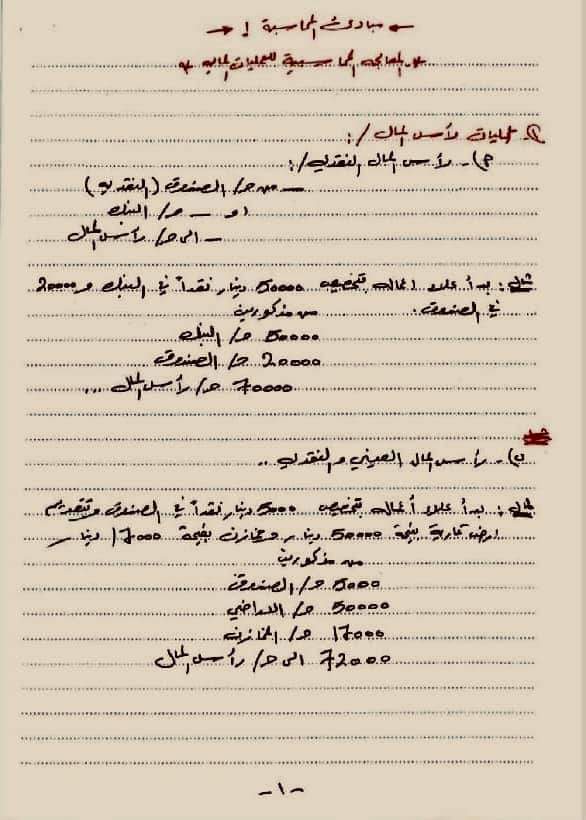 ← مبادئ المحاسبة 1 →
* المعالجة المحاسبية للعمليات المالية *
1. عمليات رأس المال /:
أ) - رأس المال النقدي /:
من ح/ الصندوق (النقدية)
او - ح/ البنك
الى ح/ رأس المال
مثال : بدأ علاء اعماله بتخصيص 50000 دينار نقداً في البنك و 20000
في الصندوق .
من مذكورين
50000 ح/ البنك
20000 ح/ الصندوق
70000 ح/ رأس المال ...
ب) - رأس المال العيني والنقدي ..
مثال : بدأ علاء أعماله بتخصيص 5000 دينار نقداً في الصندوق وتقديم
ارض تجارية بقيمة 50000 دينار ومخازن بقيمة 17000 دينار
من مذكورين
5000 ح/ الصندوق
50000 ح/ الاراضي
17000 ح/ المخازن
72000 الى ح/ رأس المال
-١-